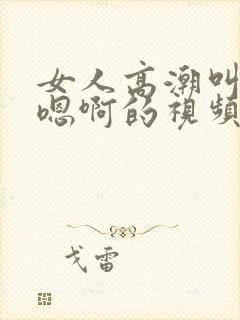 女人高潮叫
嗯啊的視頻
戈雷